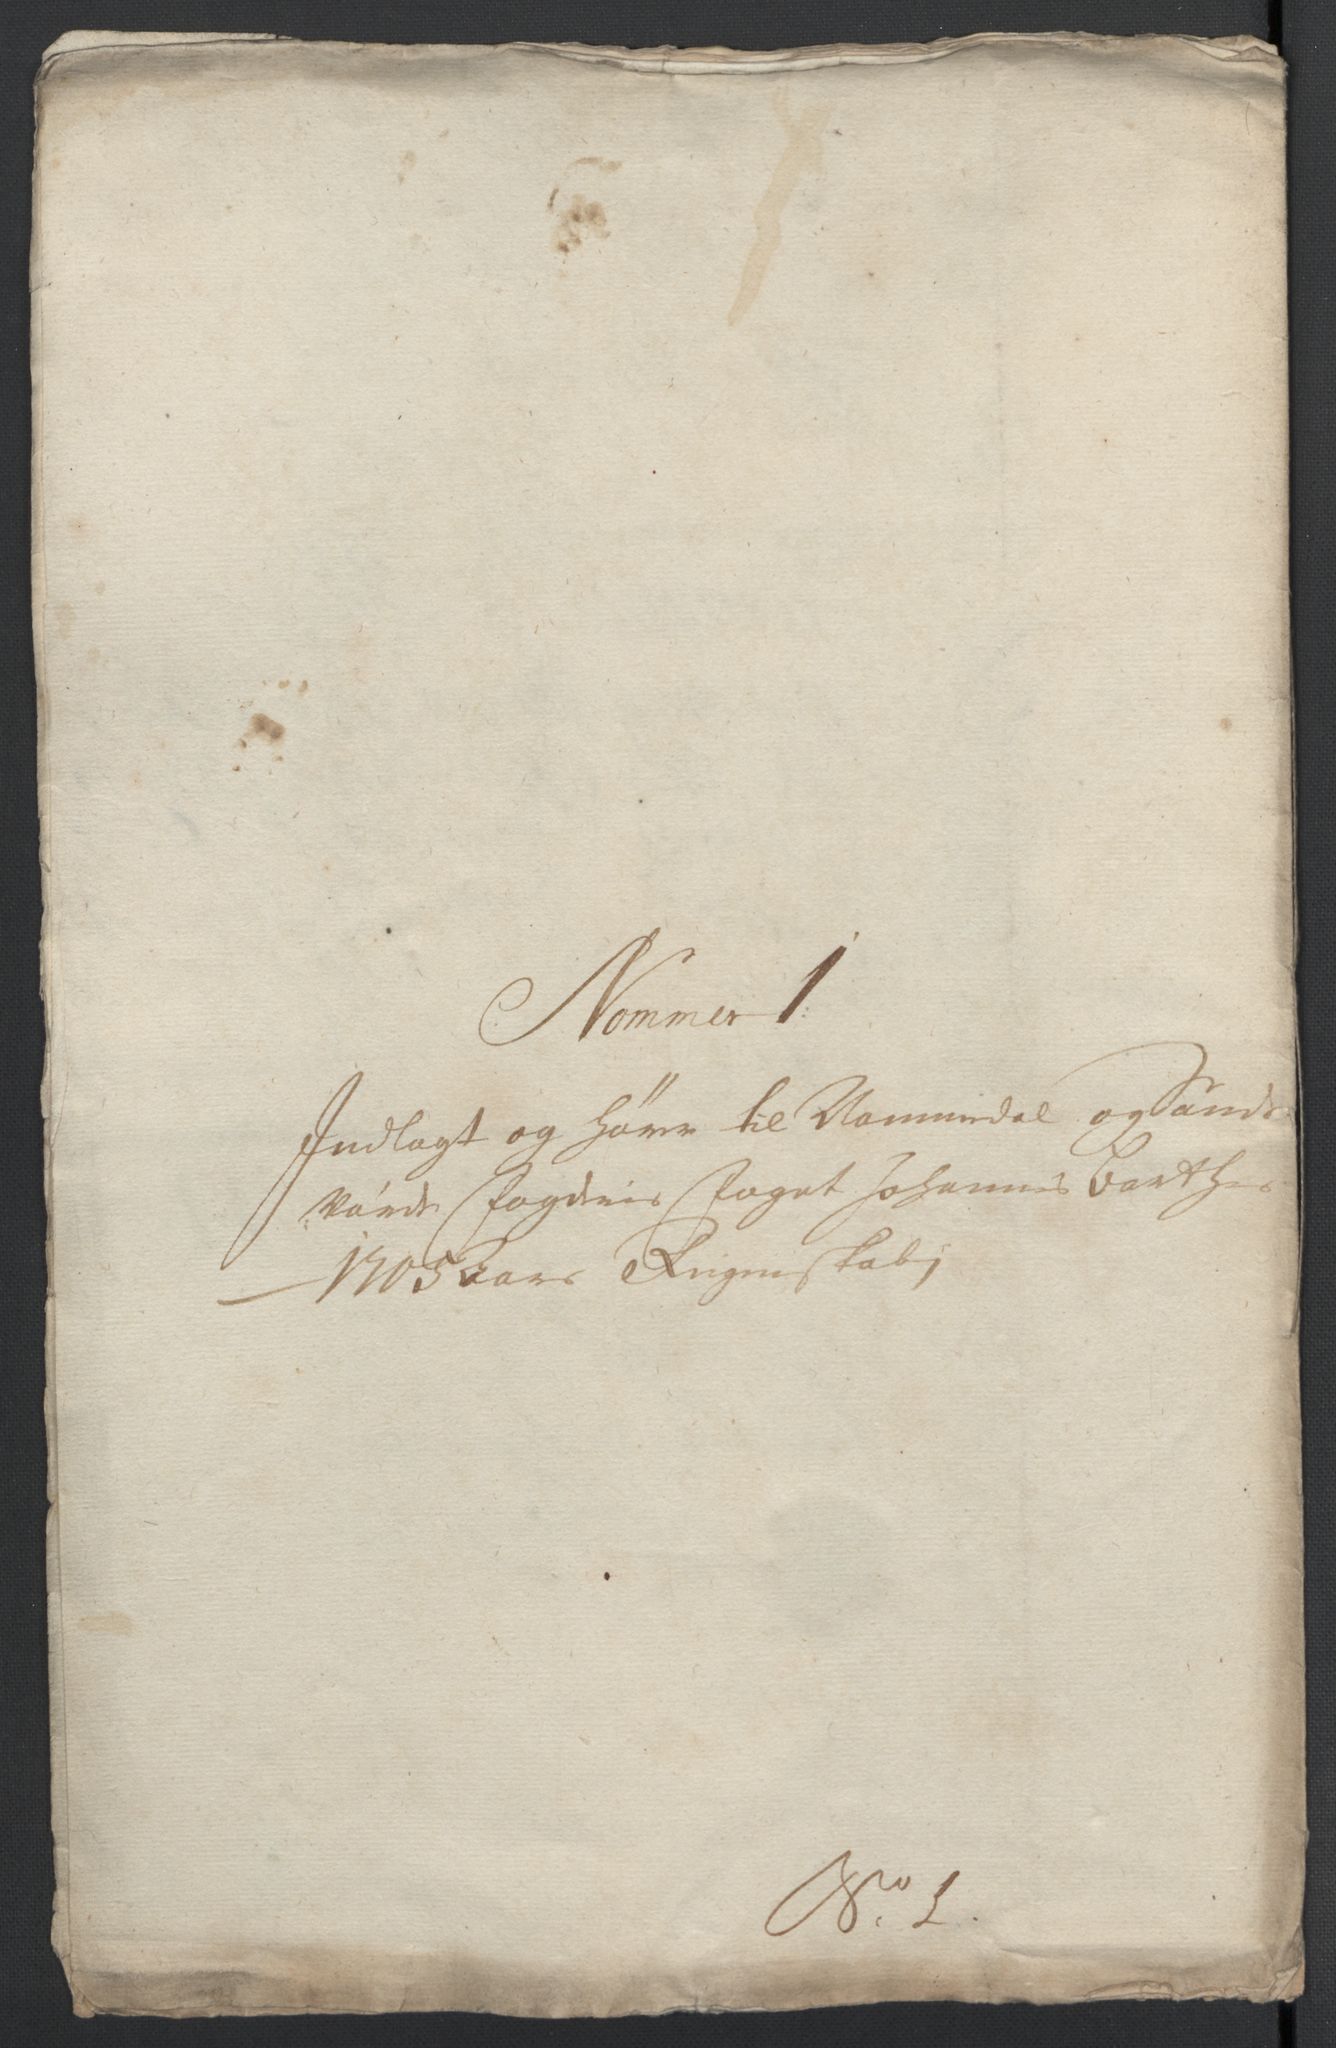 Nommer 1
Indlagt og hører til Nommedal og Sand:
:sværds Fogderies Foget Johannis Barthes
1705 Aars Regenskab;
No. 1.